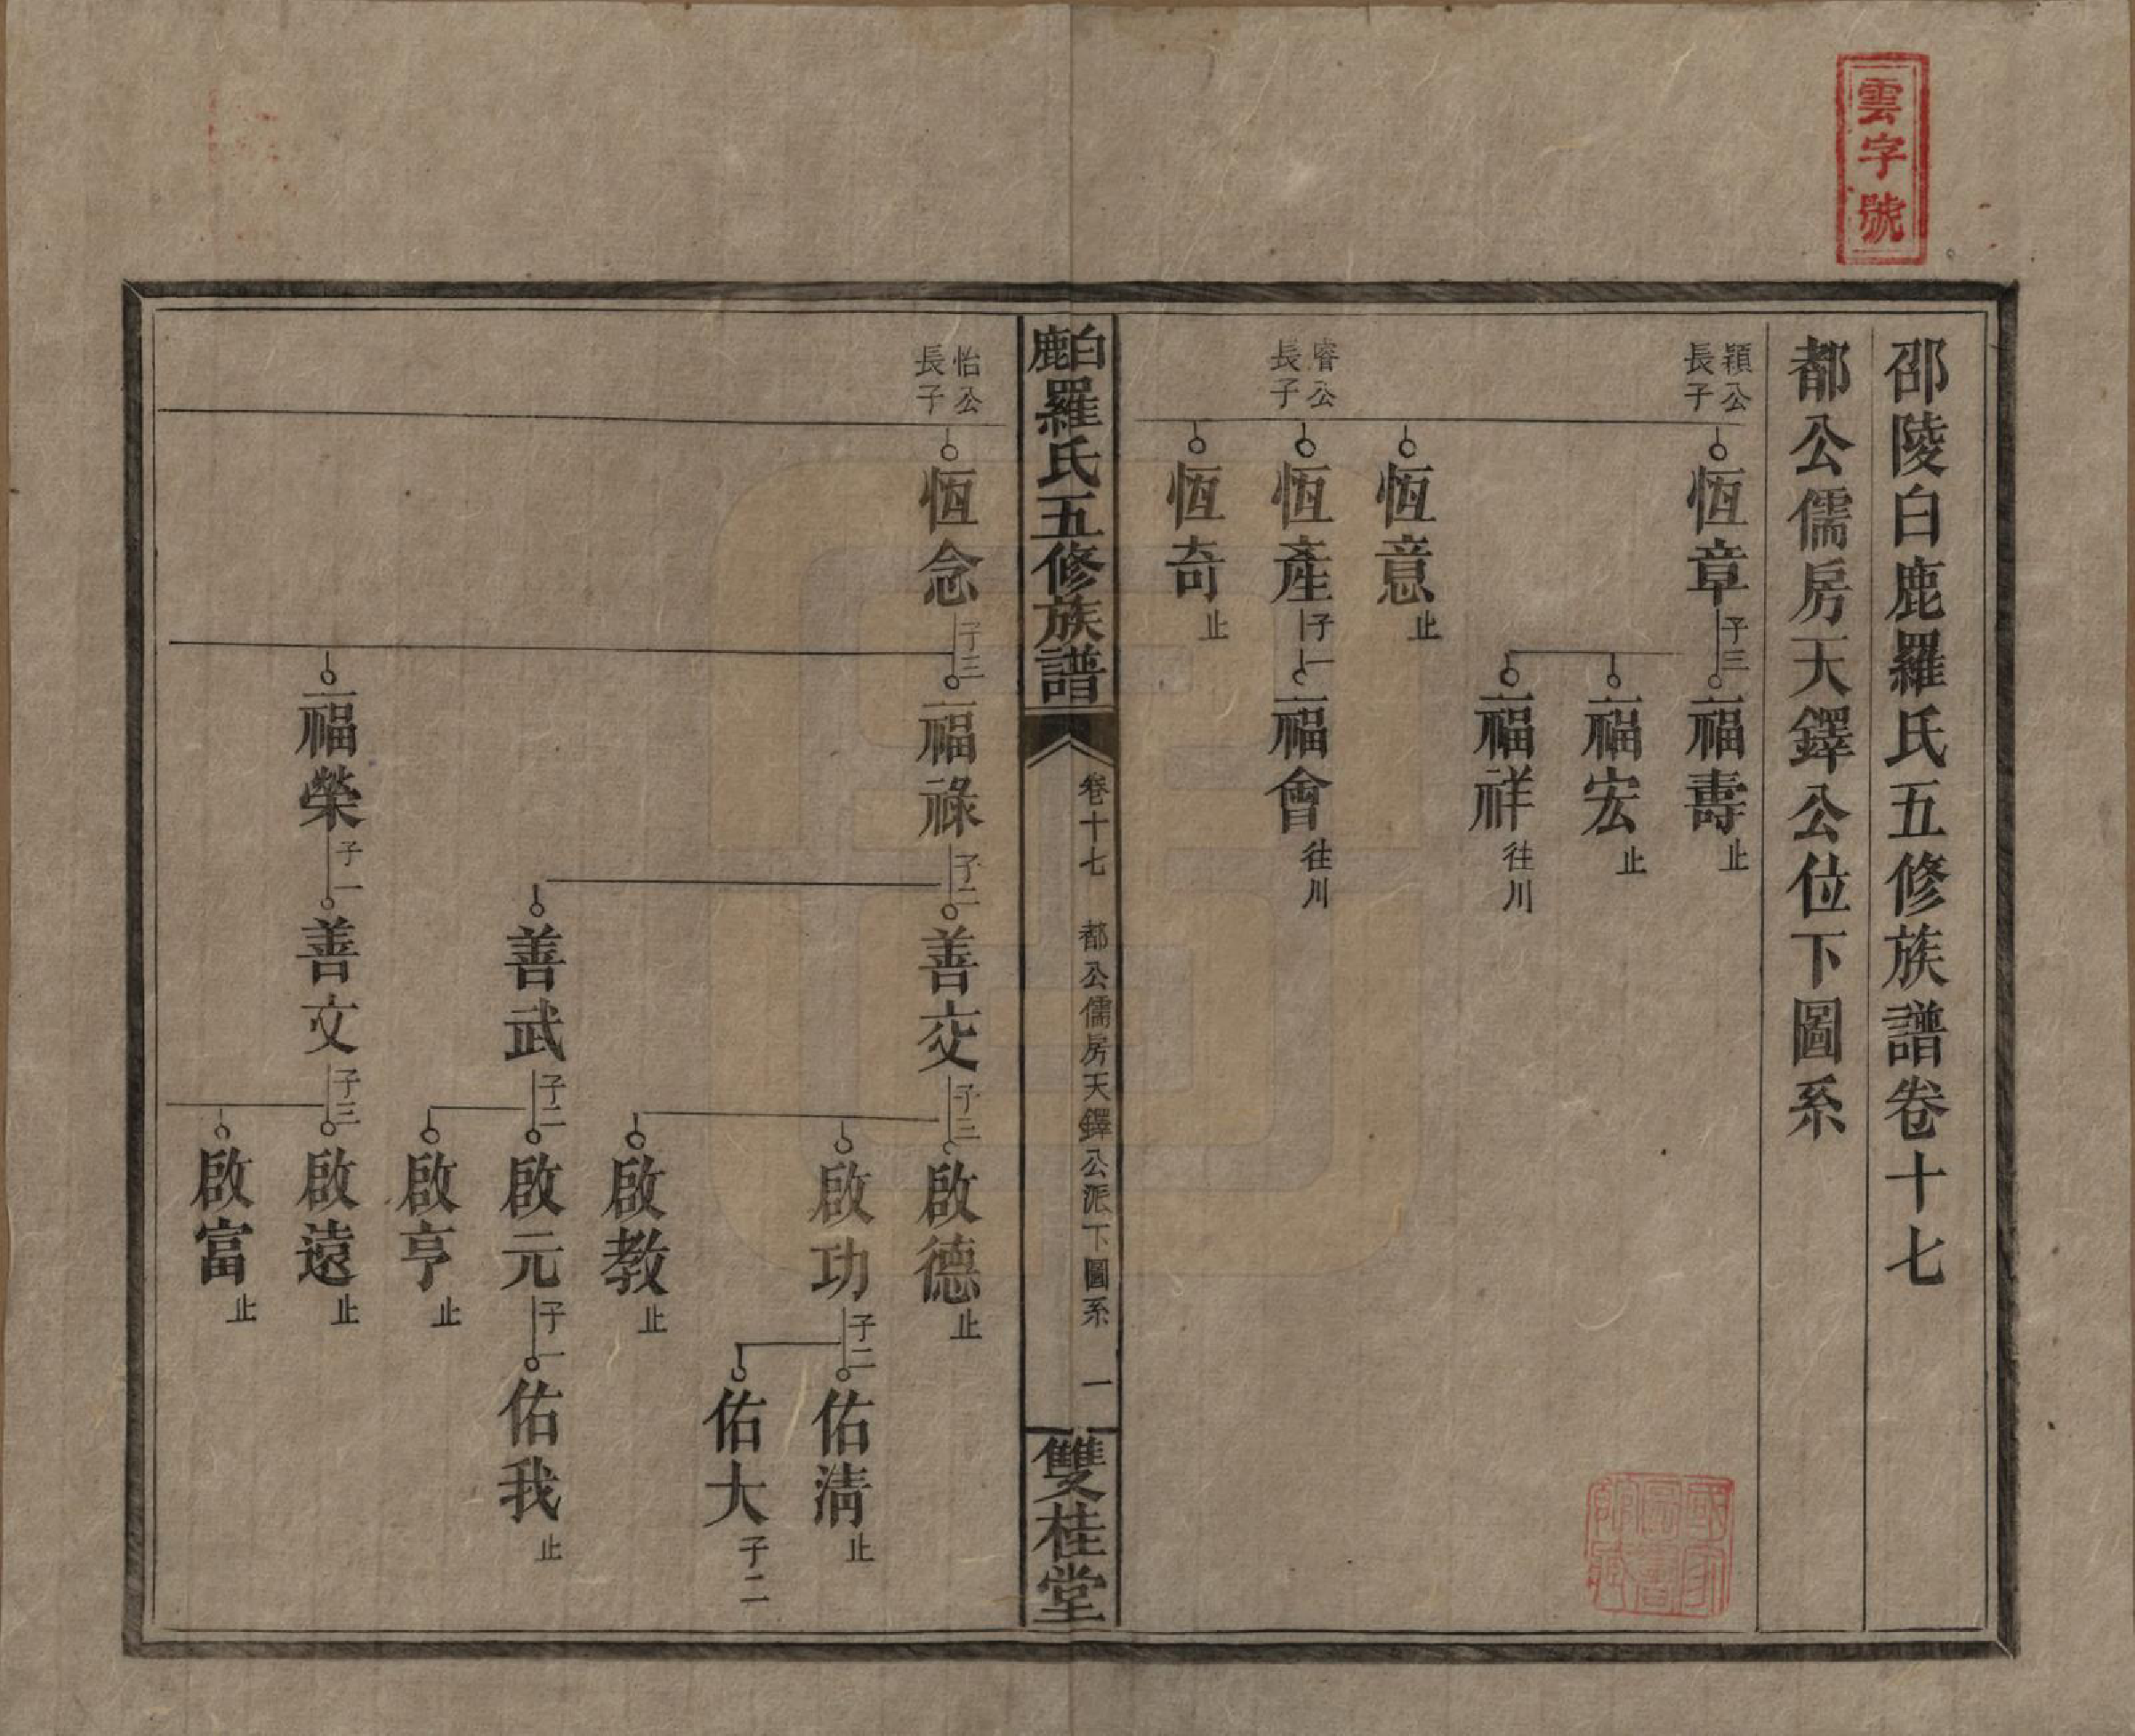 雲字號
邵陵白鹿羅氏五修族譜卷十七
都公儒房天鐸公位下圖系
穎公長子
恆章 子三
福壽 止
福宏 止
福祥 往川
恆意 止
睿公長子
恆產 子一
福會 往川
恆奇 止
白鹿羅氏五修族譜
卷十七 都公儒房天鐸公派下圖系 一
雙桂堂
怡公長子
恆念 子三
福祿 子二
善交 子三
啟德 止
啟功 子二
佑清 止
佑大 子二
啟教 止
善武 子二
啟元 子一
佑我 止
啟亨 止
福榮 子一
善文 子三
啟遠 止
啟富 止
國家圖書館藏